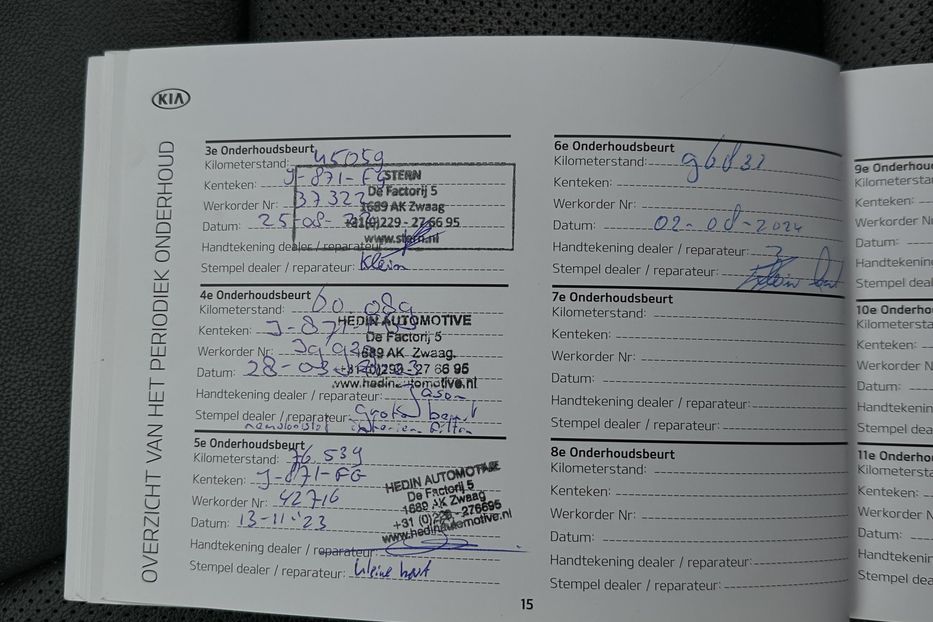 KIA
OVERZICHT VAN HET PERIODIEK ONDERHOUD
3e Onderhoudsbeurt
Kilometerstand: 45059
Kenteken: J-871-FG
Werkorder Nr: 37322
Datum: 25-08-
Handtekening dealer / reparateur:
Stempel dealer / reparateur: Klein
STERN
De Factorij 5
1689 AK Zwaag
+31(0)229 - 27 66 95
www.stern.nl
4e Onderhoudsbeurt
Kilometerstand: 60.089
Kenteken: J-871-
Werkorder Nr:
Datum: 28-03-
Handtekening dealer / reparateur: Jason
Stempel dealer / reparateur: Grote beurt
interieur filter
HEDIN AUTOMOTIVE
De Factorij 5
1689 AK Zwaag.
+31(0)229 - 27 66 95
www.hedinautomotive.nl
5e Onderhoudsbeurt
Kilometerstand: 76.539
Kenteken: J-871-FG
Werkorder Nr: 42716
Datum: 13-11-'23
Handtekening dealer / reparateur:
Stempel dealer / reparateur: kleine beurt
HEDIN AUTOMOTIVE
De Factorij 5
1689 AK Zwaag
+31 (0)229 - 276695
www.hedinautomotive.nl
6e Onderhoudsbeurt
Kilometerstand:
Kenteken:
Werkorder Nr:
Datum: 02-08-2024
Handtekening dealer / reparateur:
Stempel dealer / reparateur:
7e Onderhoudsbeurt
Kilometerstand:
Kenteken:
Werkorder Nr:
Datum:
Handtekening dealer / reparateur:
Stempel dealer / reparateur:
8e Onderhoudsbeurt
Kilometerstand:
Kenteken:
Werkorder Nr:
Datum:
Handtekening dealer / reparateur:
Stempel dealer / reparateur:
15
9e Onderhou
Kilometerstan
Kenteken:
Werkorder N
Datum:
Handtekening
Stempel deal
10e Onderho
Kilometersta
Kenteken:
Werkorder N
Datum:
Handtekenin
Stempel dea
11e Onderho
Kilometersta
Kenteken:
Werkorder N
Datum:
Handtekenin
Stempel dea